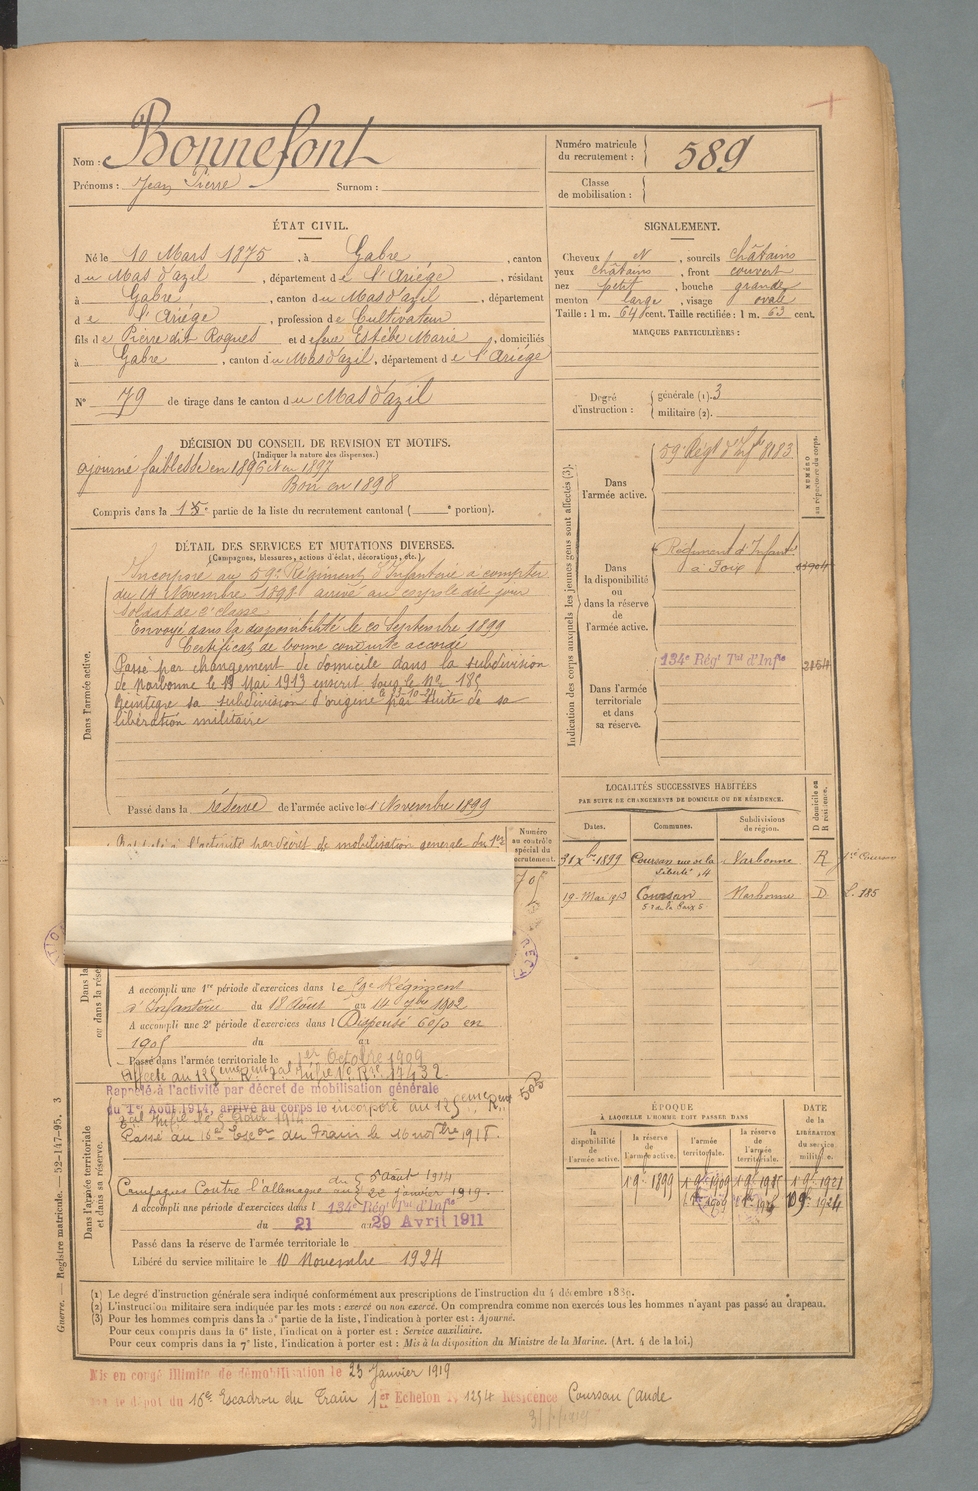 Nom : Bonnefont
Prénoms : Jean Pierre Surnom :
Numéro matricule du recrutement : 589
Classe de mobilisation :
ÉTAT CIVIL.
Né le 10 Mars 1875, à Gabre, canton
du Mas d'azil, département de l'Ariége, résidant
à Gabre, canton du Mas d'azil, département
de l'Ariége, profession de Cultivateur
fils de Pierre dit Roques et de feue Estèbe Marie, domiciliés
à Gabre, canton du Mas d'azil, département de l'Ariége
N° 79 de tirage dans le canton du Mas d'azil
SIGNALEMENT.
Cheveux N, sourcils châtains
yeux châtains, front couvert
nez petit, bouche grande
menton large, visage ovale
Taille : 1 m. 64 cent. Taille rectifiée : 1 m. 63 cent.
MARQUES PARTICULIÈRES :
Degré d'instruction : générale (1). 3
militaire (2).
DÉCISION DU CONSEIL DE REVISION ET MOTIFS.
(Indiquer la nature des dispenses.)
ajourné faiblesse en 1896 et en 1897
Bon en 1898
Compris dans la partie de la liste du recrutement cantonal ( e portion).
DÉTAIL DES SERVICES ET MUTATIONS DIVERSES.
(Campagnes, blessures, actions d'éclat, décorations, etc.)
Dans l'armée active.
Incorporé au 59e Régiment d'Infanterie à compter
du 14 Novembre 1898 arrivé au corps le dit jour
Soldat de 2e classe.
Envoyé dans la disponibilité le 20 Septembre 1899
Certificat de bonne conduite accordé
Passé par changement de domicile dans la subdivision
de Narbonne le 19 Mai 1913 inscrit sous le No 185
Réintègre sa subdivision d'origine par suite de sa
libération militaire
Passé dans la réserve de l'armée active le 1 Novembre 1899
Indication des corps auxquels les jeunes gens sont affectés (3).
NUMÉRO au répertoire du corps.
Dans l'armée active.
59e Régt d'Infie 8183
Dans la disponibilité ou dans la réserve de l'armée active.
Régiment d'Infantie
à Foix
Dans l'armée territoriale et dans sa réserve.
134e Régt Tal d'Infie 2154
LOCALITÉS SUCCESSIVES HABITÉES
PAR SUITE DE CHANGEMENTS DE DOMICILE OU DE RÉSIDENCE.
Dates. Communes. Subdivisions de région. D domicile ou R résidence.
31 xbre 1899 Coursan rue de la Liberté, 4 Narbonne R
19 Mai 1913 Coursan 5 r de la Paix 5 Narbonne D L. 185
Rappelé à l'activité par décret de mobilisation générale du 1er
Numéro au contrôle spécial du recrutement.
A accompli une 1re période d'exercices dans le 59e Régiment
d'Infanterie du 18 Août au 14 7bre 1902
A accompli une 2e période d'exercices dans l Dispensé 6% en
1905 du au
Passé dans l'armée territoriale le 1er Octobre 1909
Dans l'armée territoriale et dans sa réserve.
Rappelé à l'activité par décret de mobilisation générale
du 1er Août 1914, arrivé au corps le incorporé au 125eme Rgt
505
Passé au 16e Escon du Train le 16 novbre 1915.
Campagnes Contre l'allemagne du 5 août 1914
au 22 janvier 1919.
A accompli une période d'exercices dans l 134e Régt Tal d'Infie
du 21 au 29 Avril 1911
Passé dans la réserve de l'armée territoriale le
Libéré du service militaire le 10 Novembre 1924
ÉPOQUE
À LAQUELLE L'HOMME DOIT PASSER DANS
DATE de la LIBÉRATION du service militaire.
la disponibilité de l'armée active. la réserve de l'armée active. l'armée territoriale. la réserve de l'armée territoriale.
(1) Le degré d'instruction générale sera indiqué conformément aux prescriptions de l'instruction du 4 décembre 1889.
(2) L'instruction militaire sera indiquée par les mots : exercé ou non exercé. On comprendra comme non exercés tous les hommes n'ayant pas passé au drapeau.
(3) Pour les hommes compris dans la 5e partie de la liste, l'indication à porter est : Ajourné.
Pour ceux compris dans la 6e liste, l'indication à porter est : Service auxiliaire.
Pour ceux compris dans la 7e liste, l'indication à porter est : Mis à la disposition du Ministre de la Marine. (Art. 4 de la loi.)
Guerre. — Registre matricule. — 52-147-95. 3
Mis en congé illimité de démobilisation le 23 Janvier 1919
dépôt du 16e Escadron du Train 1er Echelon No 1254 Résidence Coursan (Aude